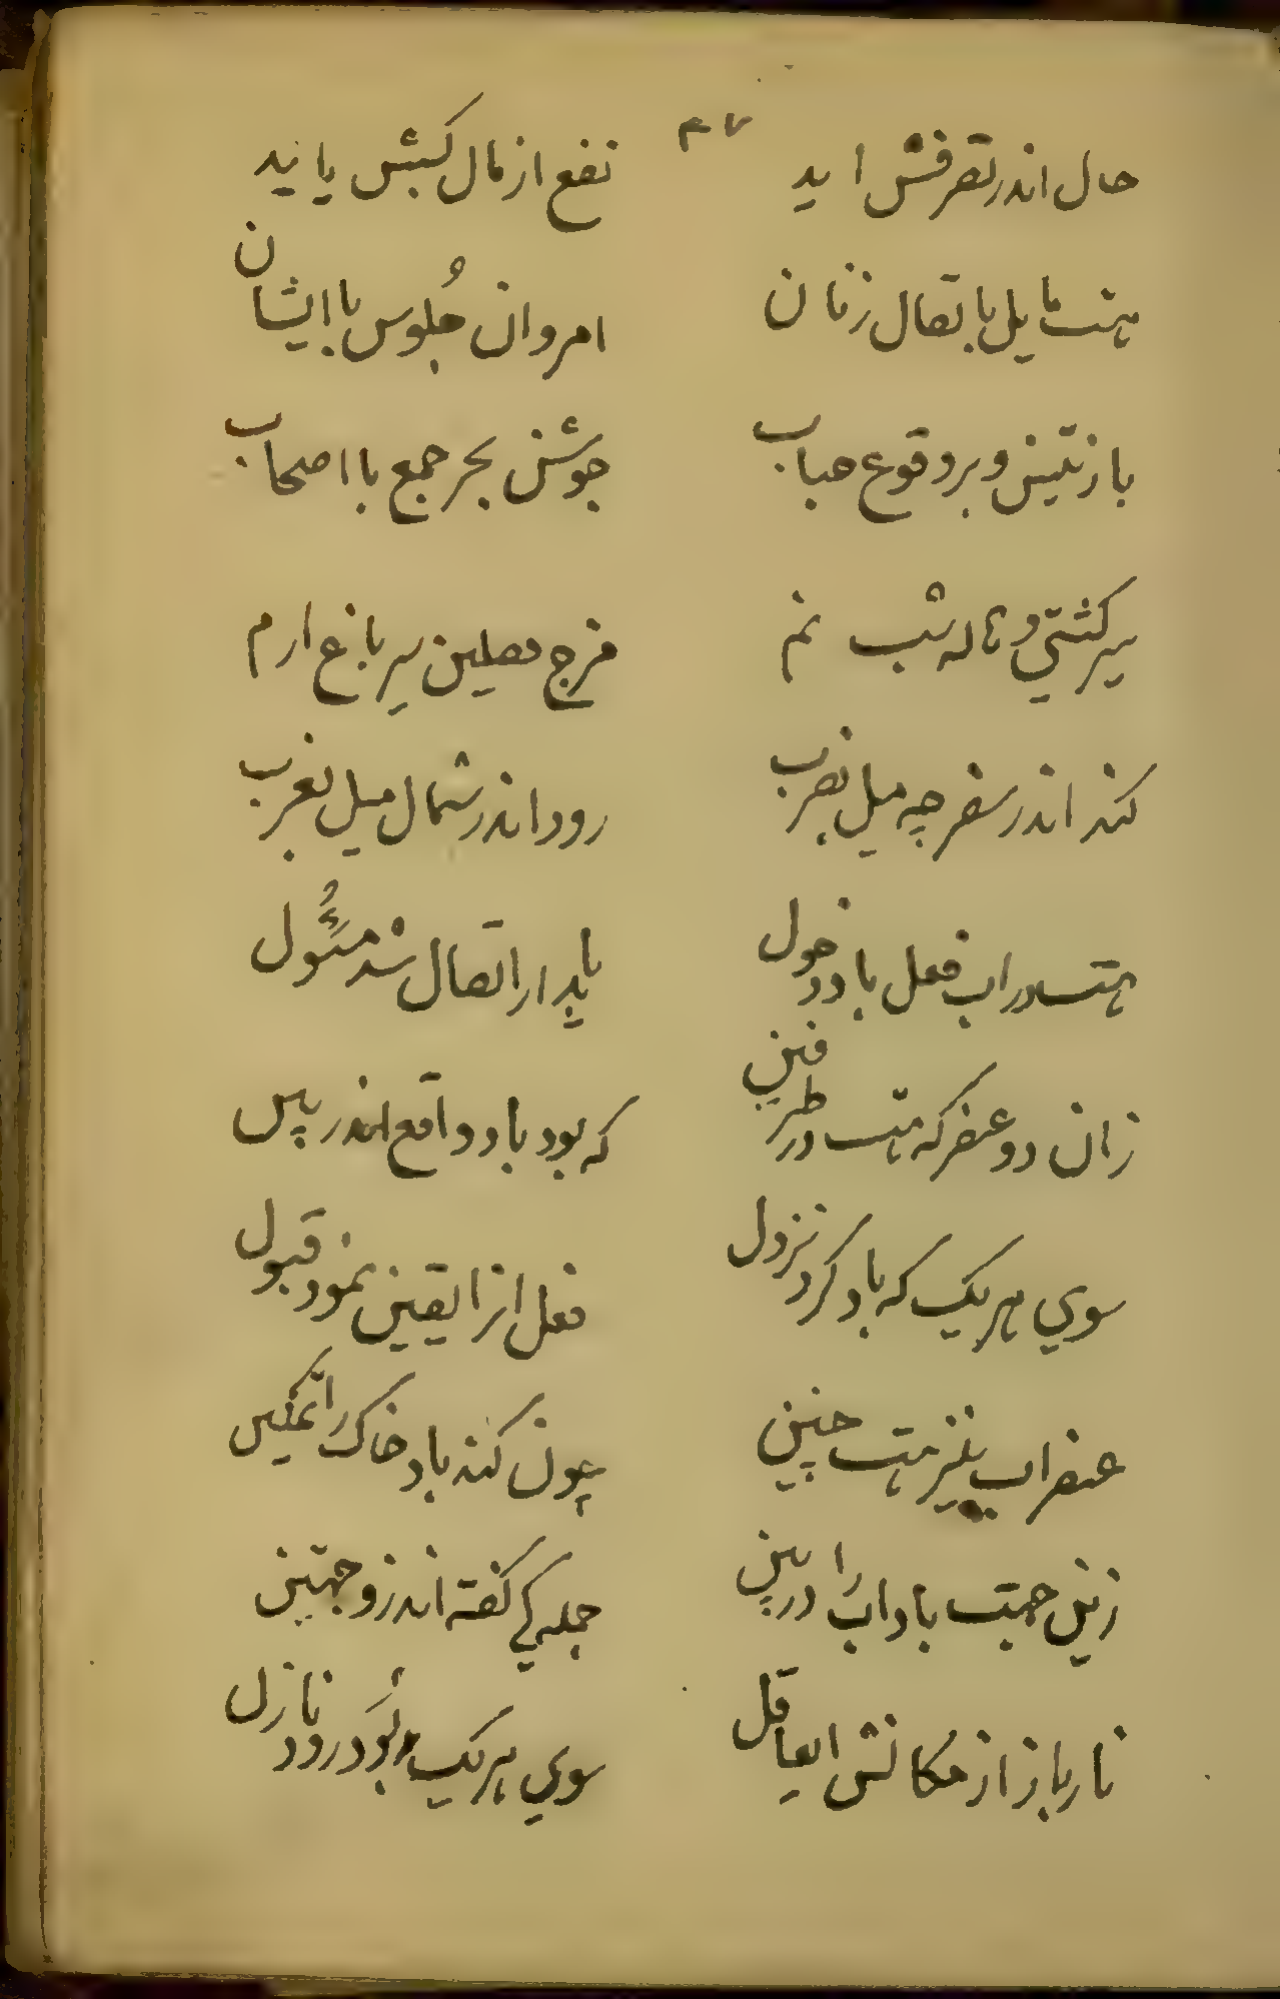 ۴۷
حال اندر تصرفش اید نفع از مال کسبش یا ید
هست مایل باتصال زنان امر وان جلوس با ایشان
باز تپش و بر وقوع حباب جوشش بحر جمع با اصحاب
سیر کشتی و ناله شب نم فرج فصلین سیر باغ ارم
کند اندر سفر چه میل بضرب رود اندر شمال میل بغرب
هست در اب فعل باد دخول باید ار اتصال شد مسئول
زان دو عنصر که هست در طرفین که بود باد واقع اندر پس
سوی هر یک که باد کرد نزول فعل انرا یقین نمود قبول
عنصر اب نیز هست چنین چون کند باد خاک را تمکین
زین جهت باد اب را در بین جمله کی گفته اند زوجهتین
نار باز از مکانش ایعاقل سوی هر یک بود رود نازل